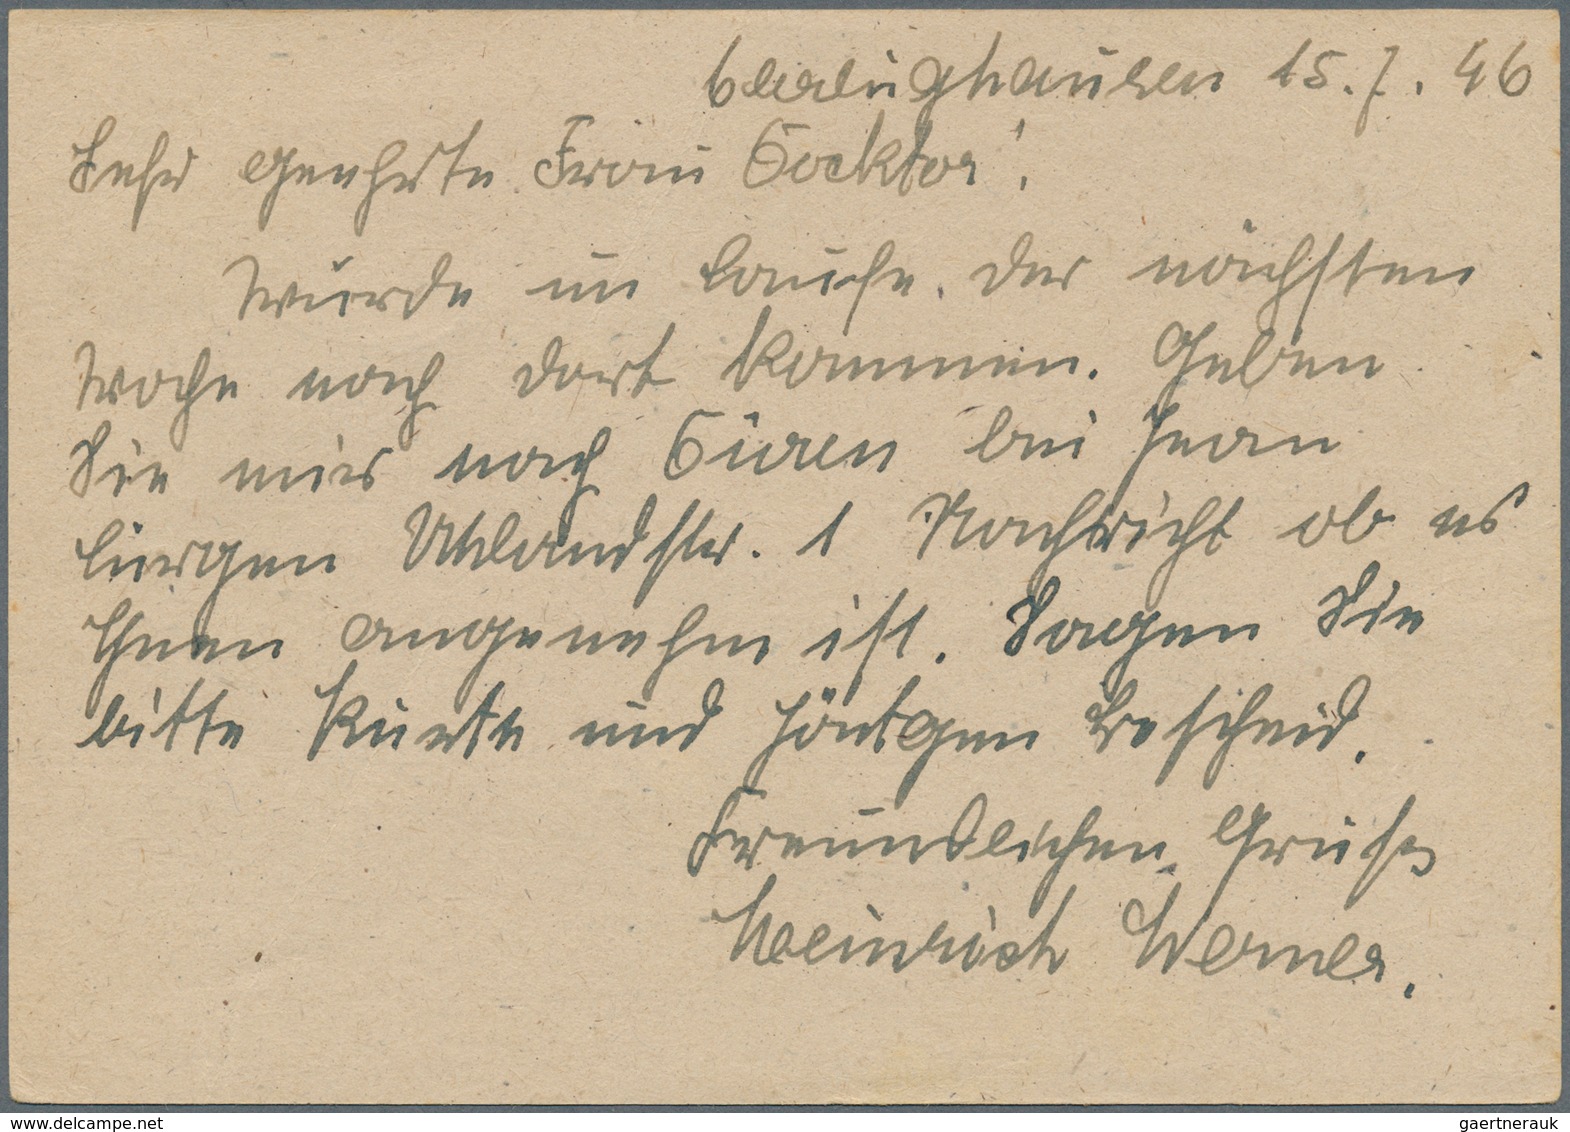 15.7.46
Sehr geehrte Frau Docktor!
Würde im Laufe der nächsten
Woche nach dort kommen. Geben
Sie mir nach Düren bei Jean
Lürgen Uhlandstr. 1 Nachricht ob es
Ihnen angenehm ist. Sagen Sie
bitte Kürte und Höntgen Bescheid.
Freundlichen Gruß
Heinrich Werner.
www.delcampe.net
gaertnerauk